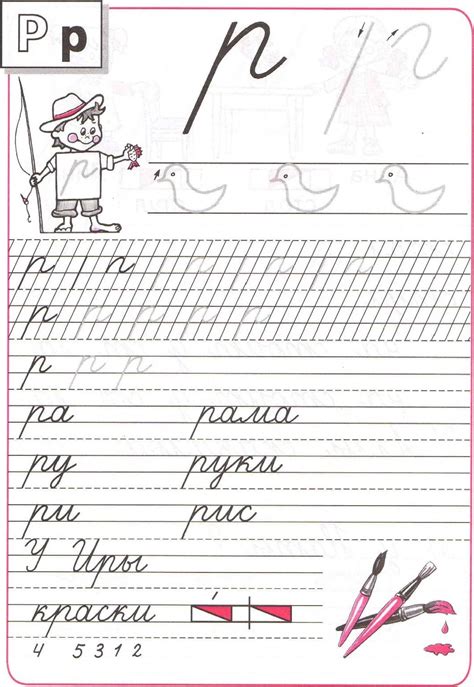 Р р
р
р
р р
р р р р р
р р р
ра рама
ру руки
ри рис
У Иры
краски
4 5 3 1 2